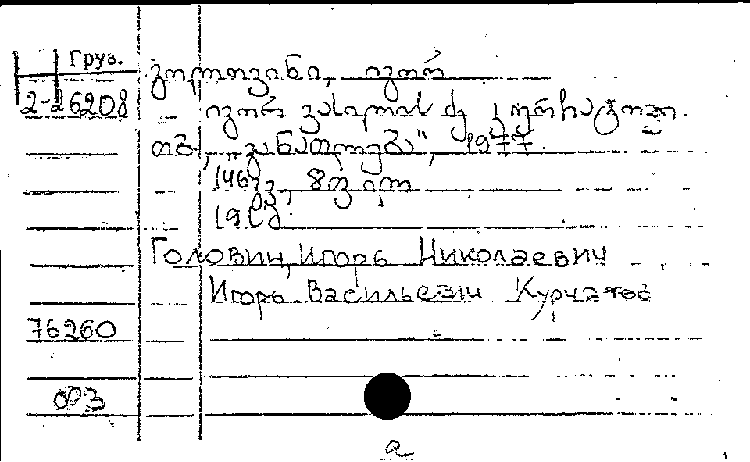 Груз.
გოლოვინი, იგორ
2-26208
იგორ ვასილის ძე კურჩატოვი.
თბ., „განათლება", 1977.
146 გვ., 8 ფ. ილ.
Головин, Игорь Николаевич
Игорь Васильевич Курчатов
76260